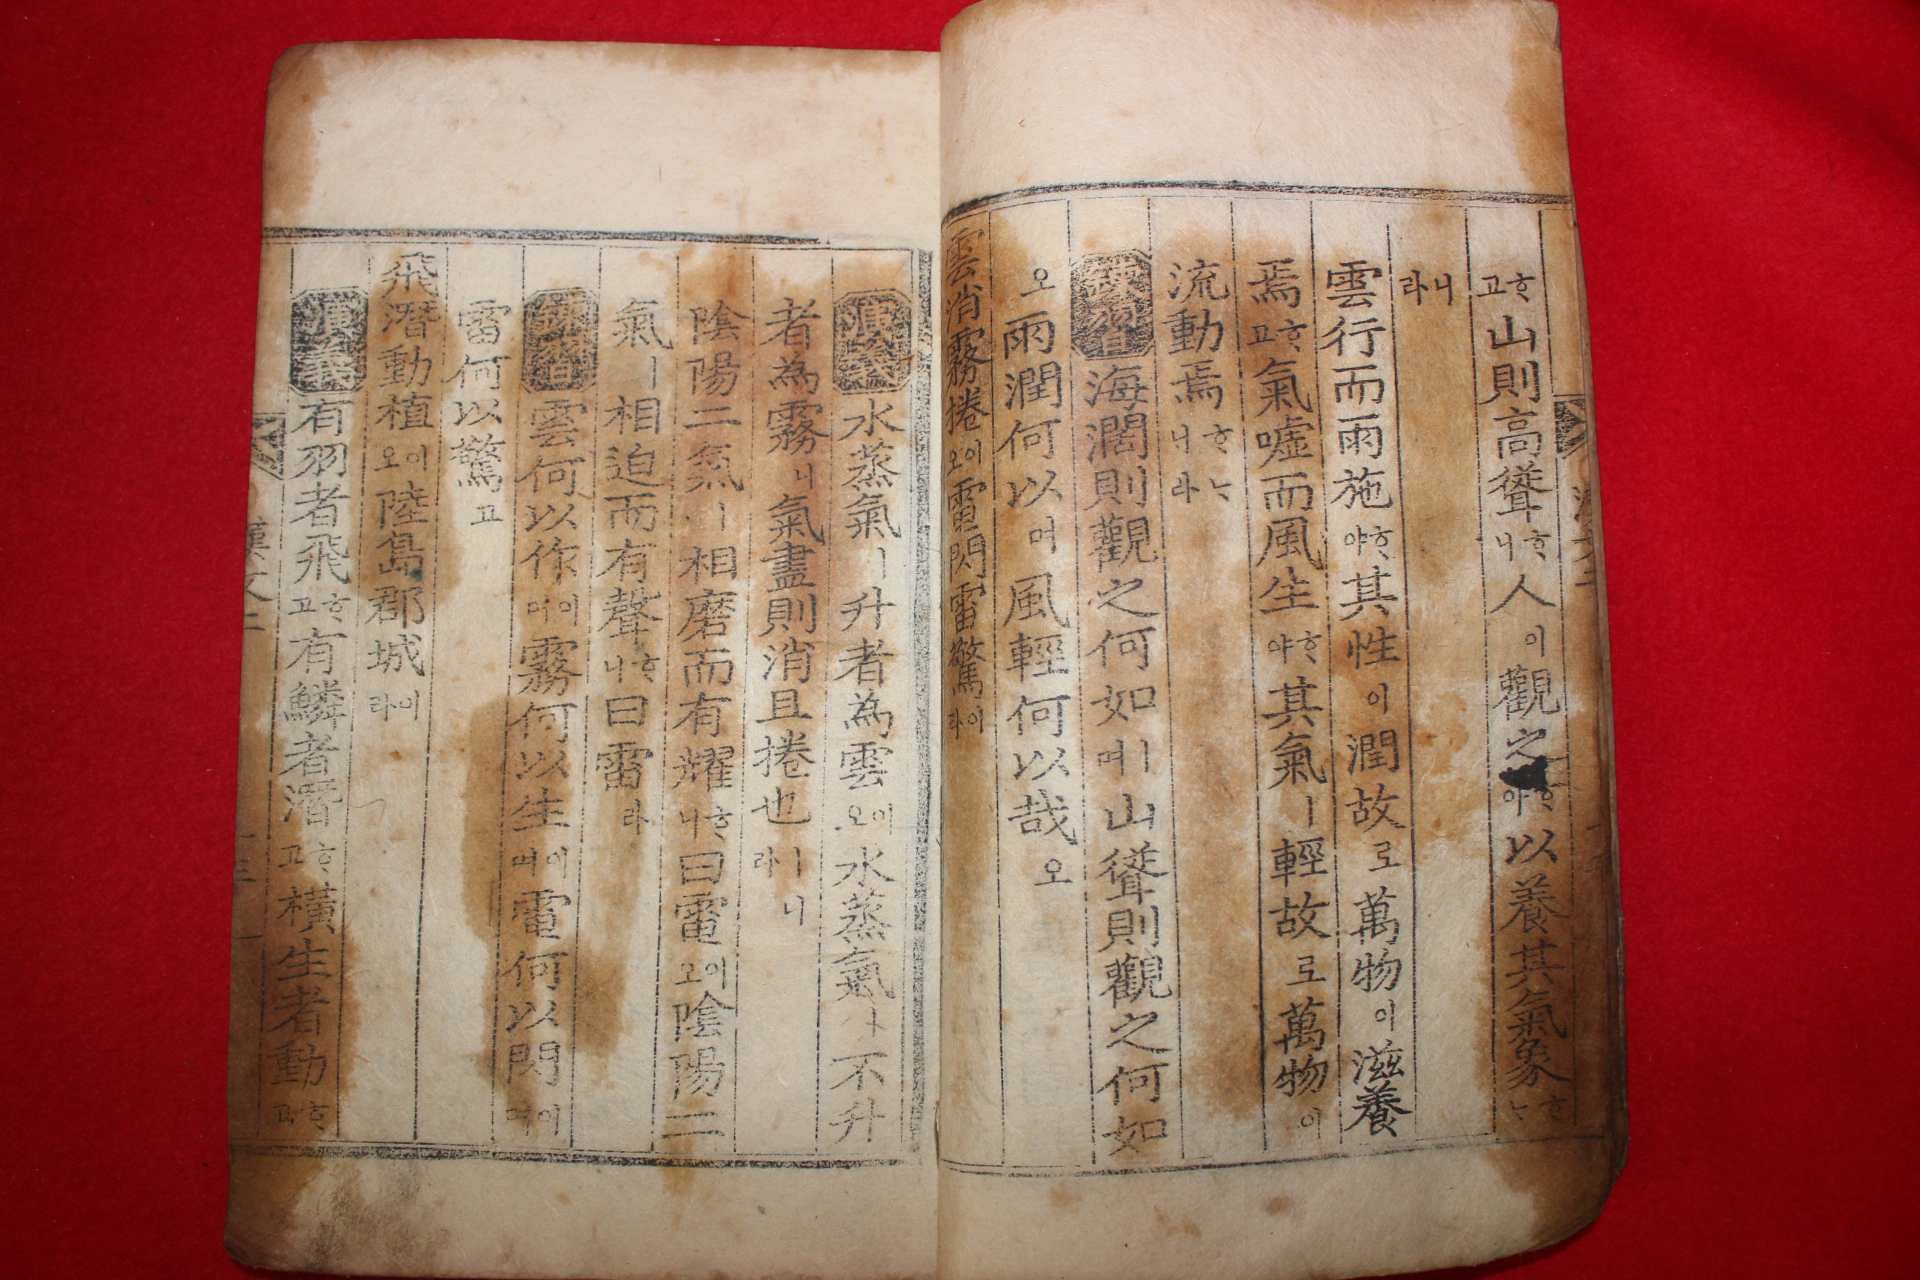 ᄒᆞ고山則高聳ᄒᆞ니人이觀之ᄒᆞ야以養其氣象ᄒᆞᄂ
니라
雲行而雨施ᄒᆞ야其性이潤故로萬物이滋養
焉ᄒᆞ고氣噓而風生ᄒᆞ야其氣ㅣ輕故로萬物이
流動焉ᄒᆞᄂ니라
海濶則觀之何如ㅣ며山聳則觀之何如
오雨潤何以며風輕何以哉오
雲消霧捲이오電閃雷驚이라
演義水蒸氣ㅣ升者為雲이오水蒸氣不升
者為霧니氣盡則消且捲也ㅣ니라
陰陽二氣ㅣ相磨而有耀ᄒᆞ니曰電이오陰陽二
氣ㅣ相迫而有聲ᄒᆞ니曰雷라
雲何以作이며霧何以生이며電何以閃이며
雷何以驚고
飛潛動植이오陸島郡城이라
演義有羽者飛ᄒᆞ고有鱗者潛ᄒᆞ고橫生者動ᄒᆞ고
漢文二